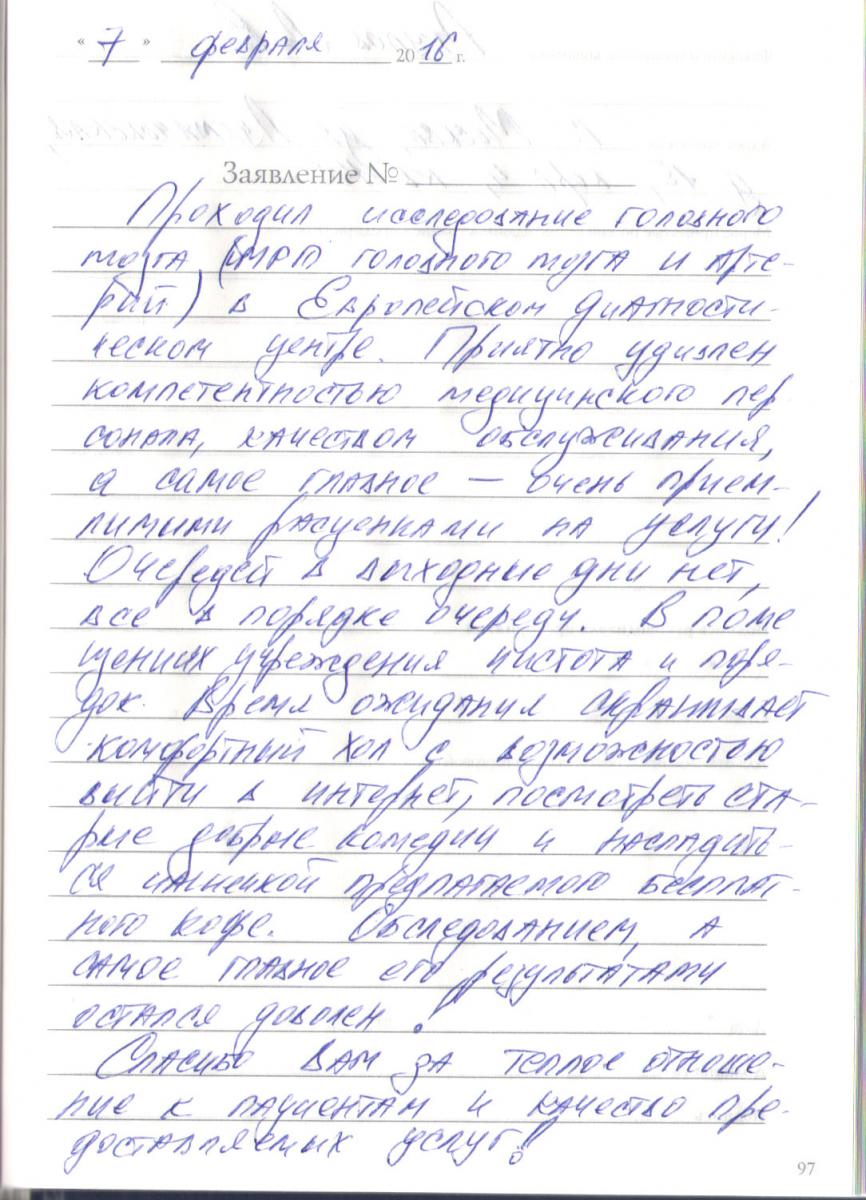 "7" февраля 2016 г.
Заявление №
Проходил исследование головного
мозга (МРТ головного мозга и арте-
рий) в Европейском диагности-
ческом центре. Приятно удивлен
компетентностью медицинского пер
сонала, качеством обслуживания,
а самое главное — очень прием-
лимыми расценками на услуги!
Очередей в выходные дни нет,
все в порядке очереди. В поме
щениях учреждения чистота и поря-
док. Время ожидания скрашивает
комфортный хол с возможностью
выйти в интернет, посмотреть ста-
рые добрые комедии и насладить-
ся чашечкой предлагаемого бесплат-
ного кофе. Обследованием, а
самое главное его результатами
остался доволен!
Спасибо Вам за теплое отноше-
ние к пациентам и качество пре-
доставляемых услуг!
97